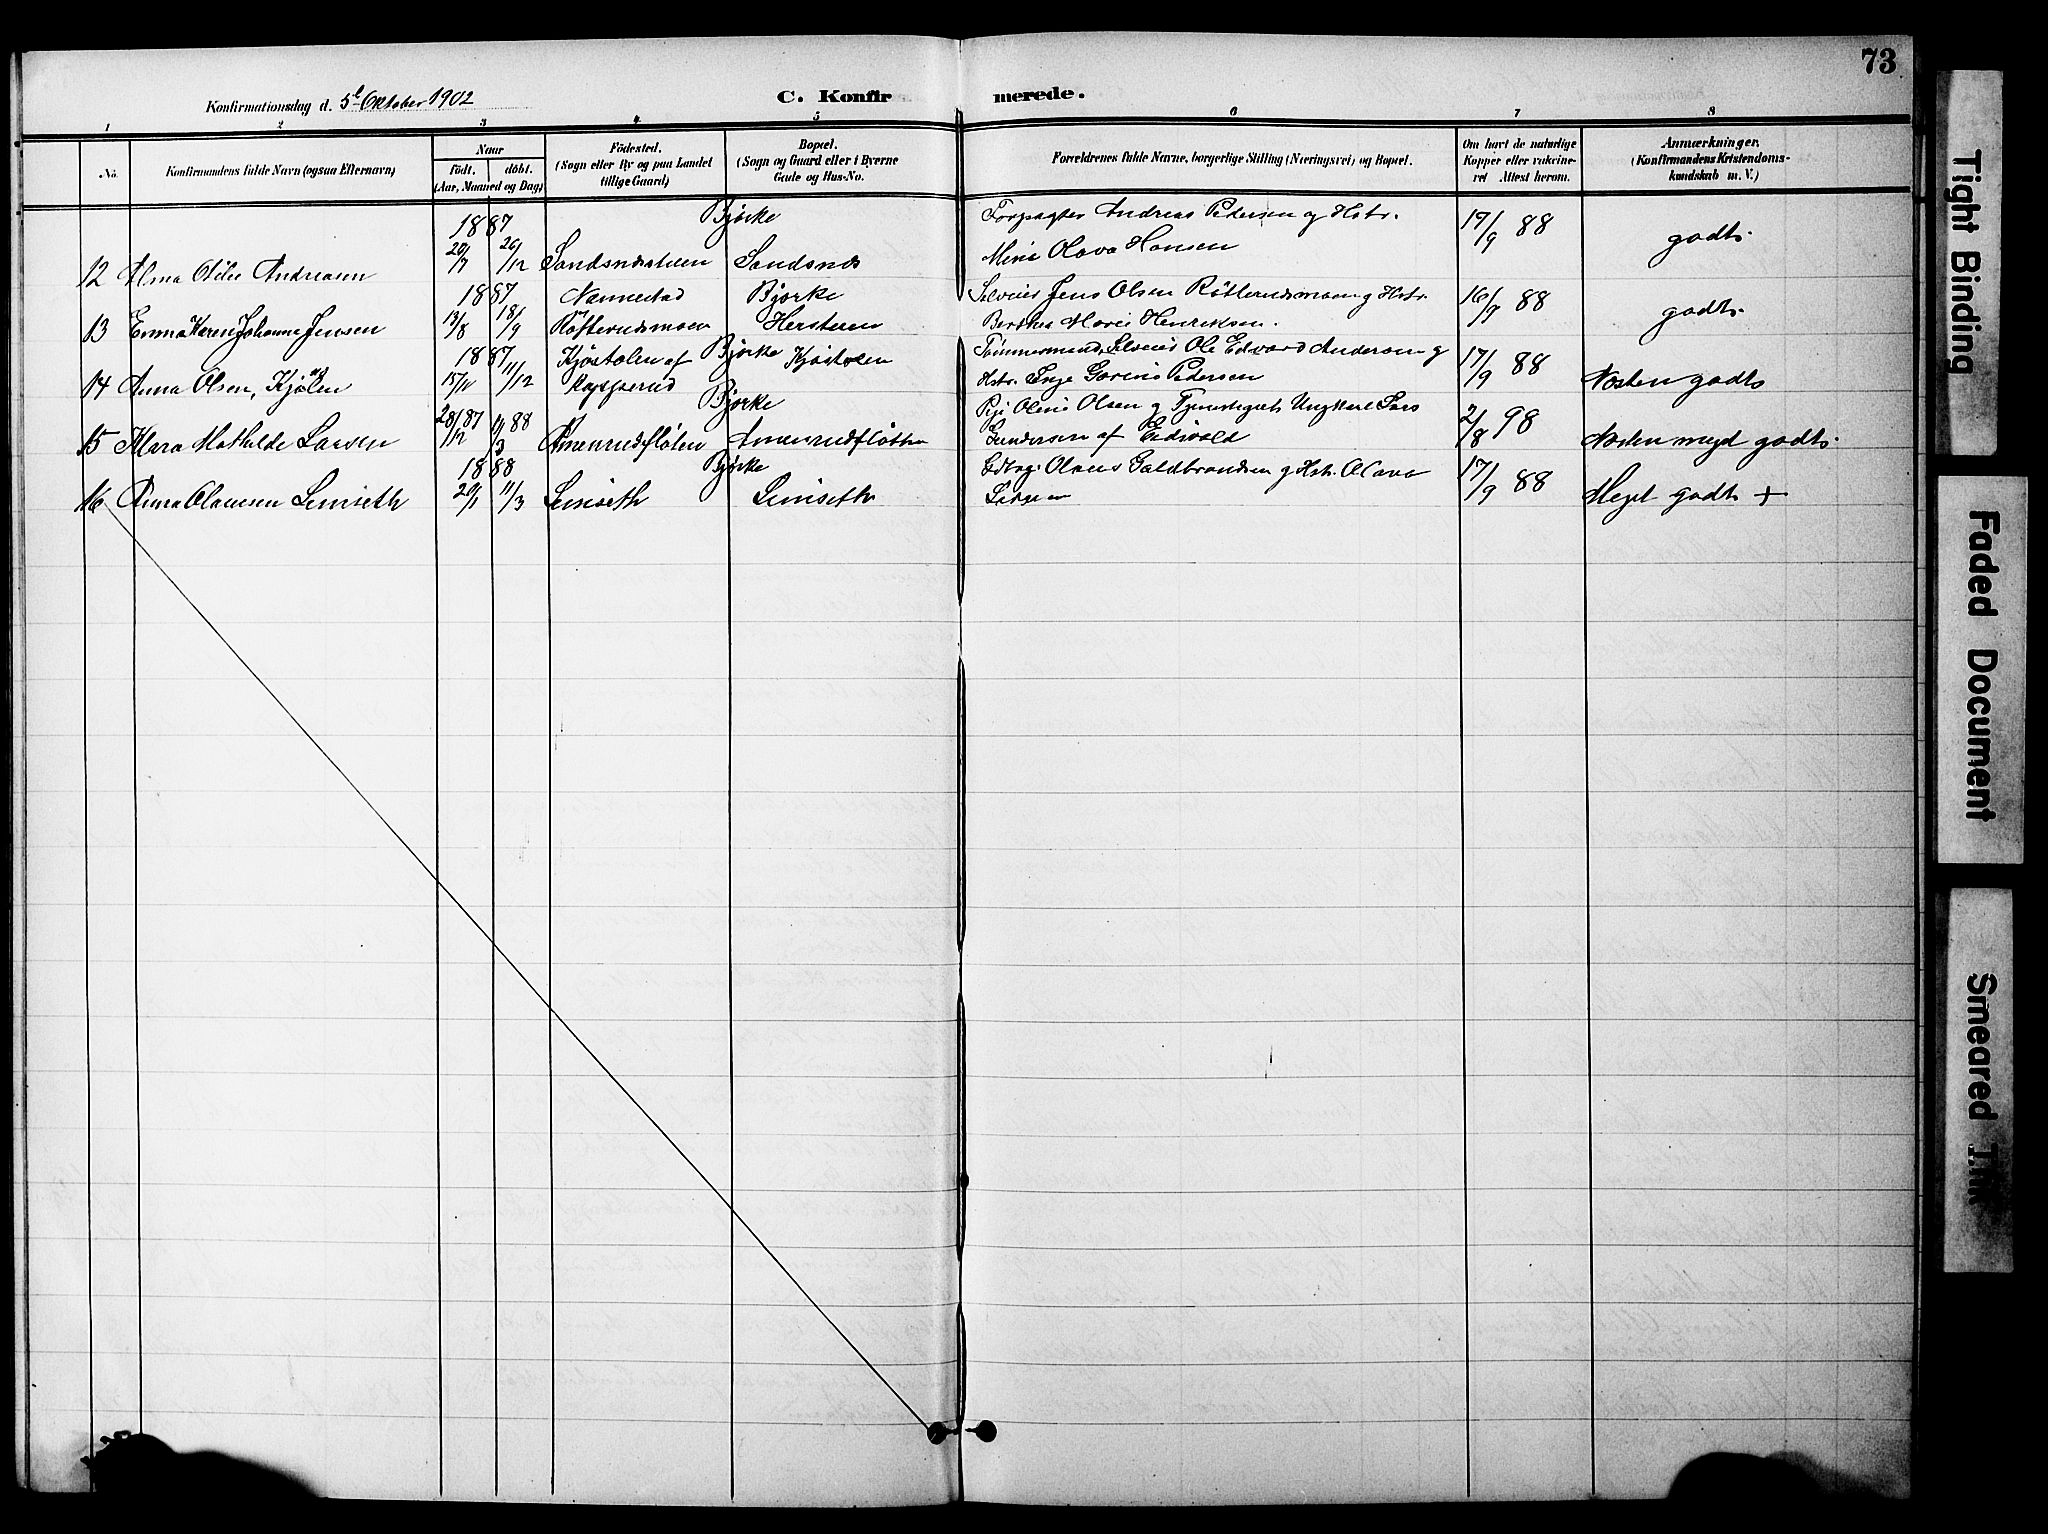 73
Konfirmationsdag d. 5te Oktober 1902
C. Konfirmerede.
1 2 3 4 5 6 7 8
No.
Konfirmandens fulde Navn (ogsaa Efternavn)
Naar
födt. döbt.
(Aar, Maaned og Dag)
Födested.
(Sogn eller By og paa Landet
tillige Gaard)
Bopæl.
(Sogn og Gaard eller i Byerne
Gade og Hus-No.
Forældrenes fulde Navne, borgerlige Stilling (Næringsvei) og Bopæl.
Om havt de naturlige
Kopper eller vakcine-
ret Attest herom.
Anmærkninger.
(Konfirmandens Kristendoms-
kundskab m. V.)
1887 Bjørke Forpagter Andreas Pedersen og Hstr. 17/9 88 godt
12 Alma Otilie Andreasen 20/7 26/12 Sandsnæsstuen Sandsnæs Mina Olava Hansen
1887 Nannestad Bjørke Selveier Jens Olsen Røtterudsmoen og Hstr. 16/9 88 godt
13 Emma Karen Johanne Jensen 13/8 18/9 Røtterudsmoen Hersteren Berthea Marie Henriksen.
1887 Kjøstolen af Bjørke Kjøstolen Tømmermand, Selveier Ole Edvard Andersen og 17/9 88
14 Anna Olsen, Kjølen 15/11 11/12 Hstr. Inge Pedersen Næsten godt
28/12 87 11/3 88 Bjørke Pige Oline Olsen og Tjenestegut Ungkarl Lars 2/8 98
15 Klara Mathilde Larsen Amenrudfløten Amenrudfløtten Gundersen af Eidsvold Næsten meget godt
1888 Bjørke Gdbrg. Olaus Guldbrandsen og Hstr. Olava 17/9 88
16 Anna Olausen Leniseth 20/1 11/3 Leniseth Leniseth Meget godt +
Tight Binding
Faded Document
Smeared Ink